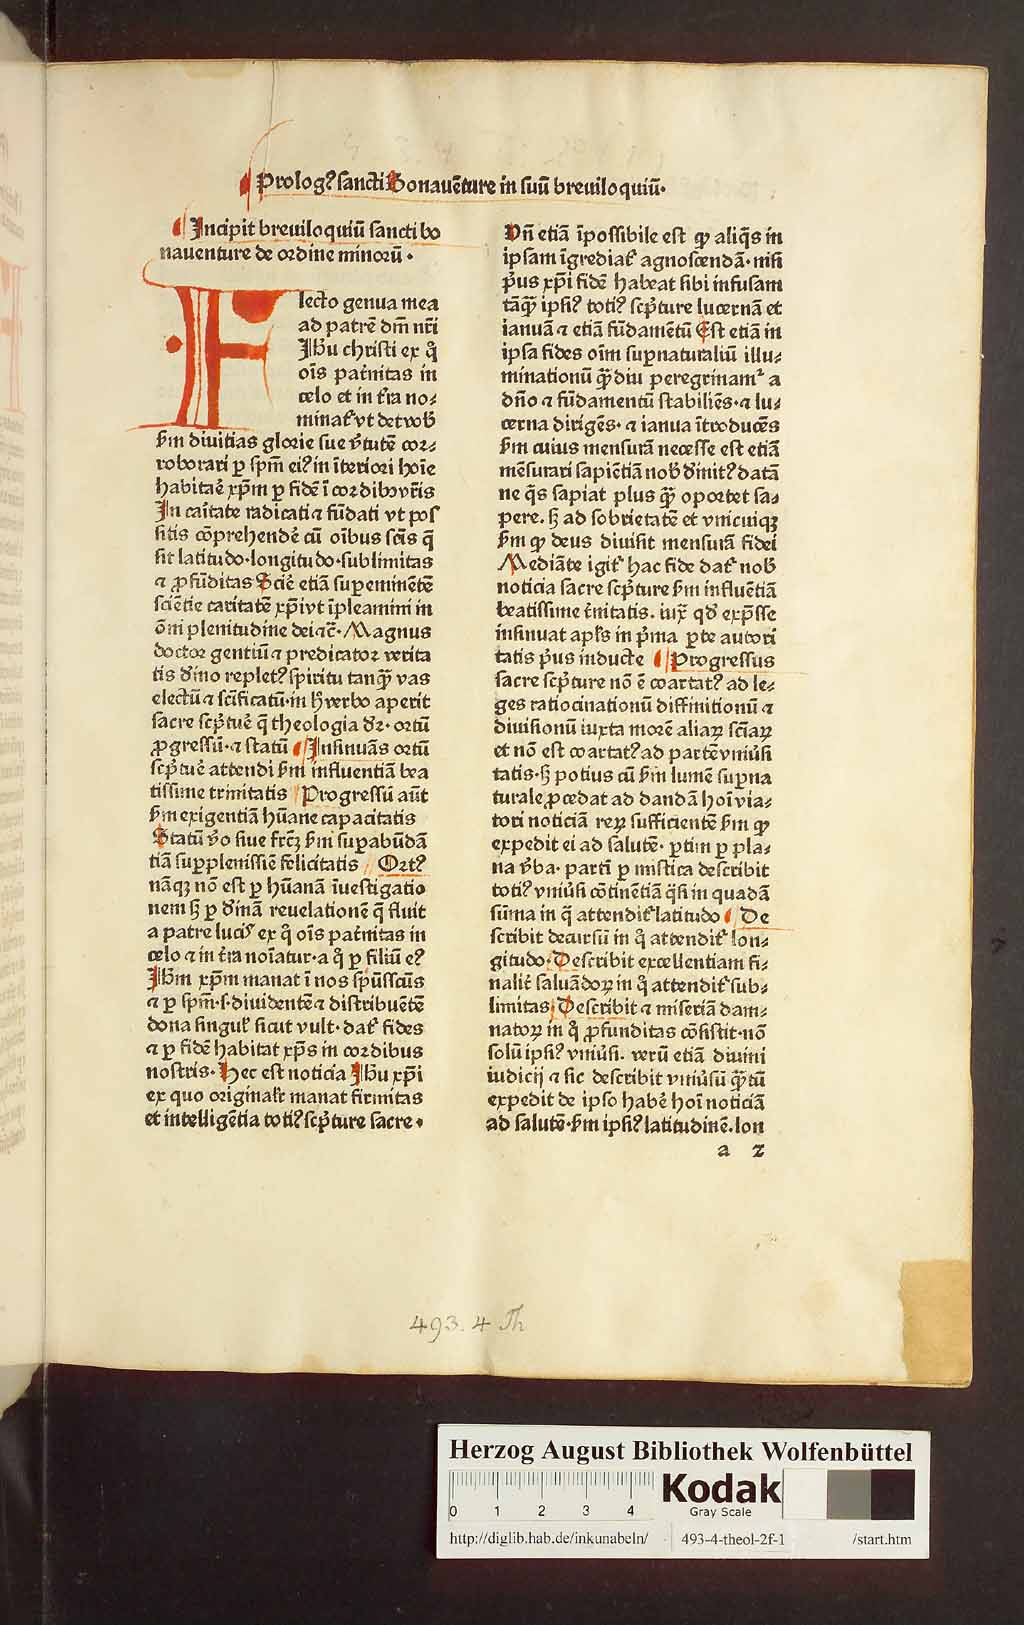 Prologꝰ sancti Bonauēture in suū breuiloquiū.
Incipit breuiloquiū sancti bo
nauenture de ordine minorū.
Flecto genua mea
ad patrē dm̄ nr̄i
Ihu christi ex q̊
oīs pat̄nitas in
celo et in t̄ra no⸗
minat᷑ vt det vob̄
ẜm diuitias glorie sue v̄tutē cor⸗
roborari ꝑ spm̄ eiꝰ in īteriori hoīe
habitaē xp̄m ꝑ fidē ī cordibꝫ vr̄is
In caītate radicati ⁊ fūdati vt pos
sitis cōprehendē cū oībus scīs q̄
sit latitudo·longitudo·sublimitas
⁊ ꝓfūditas Scīē etiā supeminētē
sciētie caritatē xp̄i vt īpleamini in
ōni plenitudine dei ⁊c̄· Magnus
doctor gentiū ⁊ predicator verita
tis d̄ino repletꝰ spiritu tanqꝫ vas
electū ⁊ sc̄ificatū·in h̄ verbo aperit
sacre sc̄ptuē q̄ theologia dr̄· ortū
ꝓgressū·⁊ statū Insinuās ortū
sc̄ptuē attendi ẜm influentiā bea
tissime trinitatis Progressū aūt
ẜm exigentiā hūane capacitatis
Statū v̄o siue fructū ẜm supabūdā
tiā supplenissīē felicitatis Ortꝰ
nāqꝫ nō est ꝑ hūanā īuestigatio
nem sꝫ ꝑ d̄inā reuelationē q̄ fluit
a patre lucis ex q̊ oīs pat̄nitas in
celo ⁊ in t̄ra noīatur·a q̊ ꝑ filiū eꝰ
Ihm xp̄m manat ī nos sp̄ussc̄us
⁊ ꝑ spm̄·s·diuidentē ⁊ distribuētē
dona singul᷑ sicut vult·dat᷑ fides
⁊ ꝑ fidē habitat xp̄s in cordibus
nostris· Hec est noticia Ihu xp̄i
ex quo originalr̄ manat firmitas
et intelligētia totiꝰ sc̄pture sacre·
Vn̄ etiā īpossibile est ꝙ aliq̄s in
ipsam īgrediat᷑ agnoscendā·nisi
p̄us xp̄i fidē habeat sibi infusam
tāqꝫ ipsiꝰ totiꝰ sc̄pture lucernā et
ianuā ⁊ etiā fūdamētū Est etiā in
ipsa fides oīm supnaturaliū illu⸗
minationū qꝫdiu peregrinam² a
dn̄o ⁊ fūdamentū stabiliēs·⁊ lu⸗
cerna dirigēs·⁊ ianua ītroducēs
ẜm cuius mensurā necesse est etiā
mēsurari sapiētiā nob̄ d̄initꝰ datā
ne q̄s sapiat plus qꝫ oportet sa⸗
pere. sꝫ ad sobrietatē et vnicuiqꝫ
ẜm ꝙ deus diuisit mensurā fidei
Mediāte igit᷑ hac fide dat᷑ nob̄
noticia sacre sc̄pture ẜm influētiā
beatissime t̄nitatis. iux̄ qd̄ exp̄sse
insinuat apl̄s in p̄ma ꝑte autori
tatis p̄us inducte Progressus
sacre sc̄pture nō ē coartatꝰ ad le⸗
ges ratiocinationū diffinitionū ⁊
diuisionū iuxta morē aliaꝝ sciāꝝ
et nō est coartatꝰ ad partē vniu̇si
tatis·sꝫ potius cū ẜm lumē supna
turale ꝓcedat ad dandā hoī via⸗
tori noticiā reꝝ sufficientē ẜm ꝙ
expedit ei ad salutē· ꝑtim ꝑ pla⸗
na v̄ba· partī ꝑ mistica describit
totiꝰ vniu̇si cōtinētiā q̄si in quadā
sūma in q̄ attendit᷑ latitudo De
scribit decursū in q̊ attendit᷑ lon⸗
gitudo· Describit excellentiam fi⸗
nalit̄ saluādoꝝ in q̊ attendit᷑ sub⸗
limitas Describit ⁊ miseriā dam⸗
natoꝝ in q̊ ꝓfunditas cōsistit·nō
solū ipsiꝰ vniu̇si. verū etiā diuini
iudicij ⁊ sic describit vniu̇sū qꝫtū
expedit de ipso habē hoī noticiā
ad salutē·ẜm ipsiꝰ latitudinē. lon
a 2
493. 4 Th
Herzog August Bibliothek Wolfenbüttel
0 1 2 3 4
Kodak
Gray Scale
http://diglib.hab.de/inkunabeln/ 493-4-theol-2f-1 /start.htm